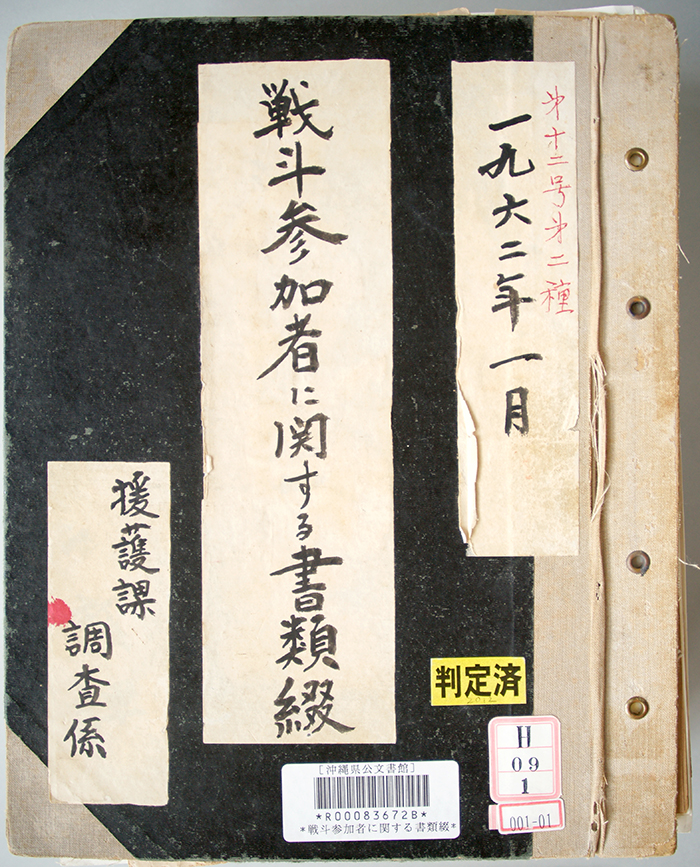 第十二号第二種
一九六二年一月
戦斗参加者に関する書類綴
援護課
調査係
判定済
H
09
1
001-01
[沖縄県公文書館]
*R00083672B*
*戦斗参加者に関する書類綴*